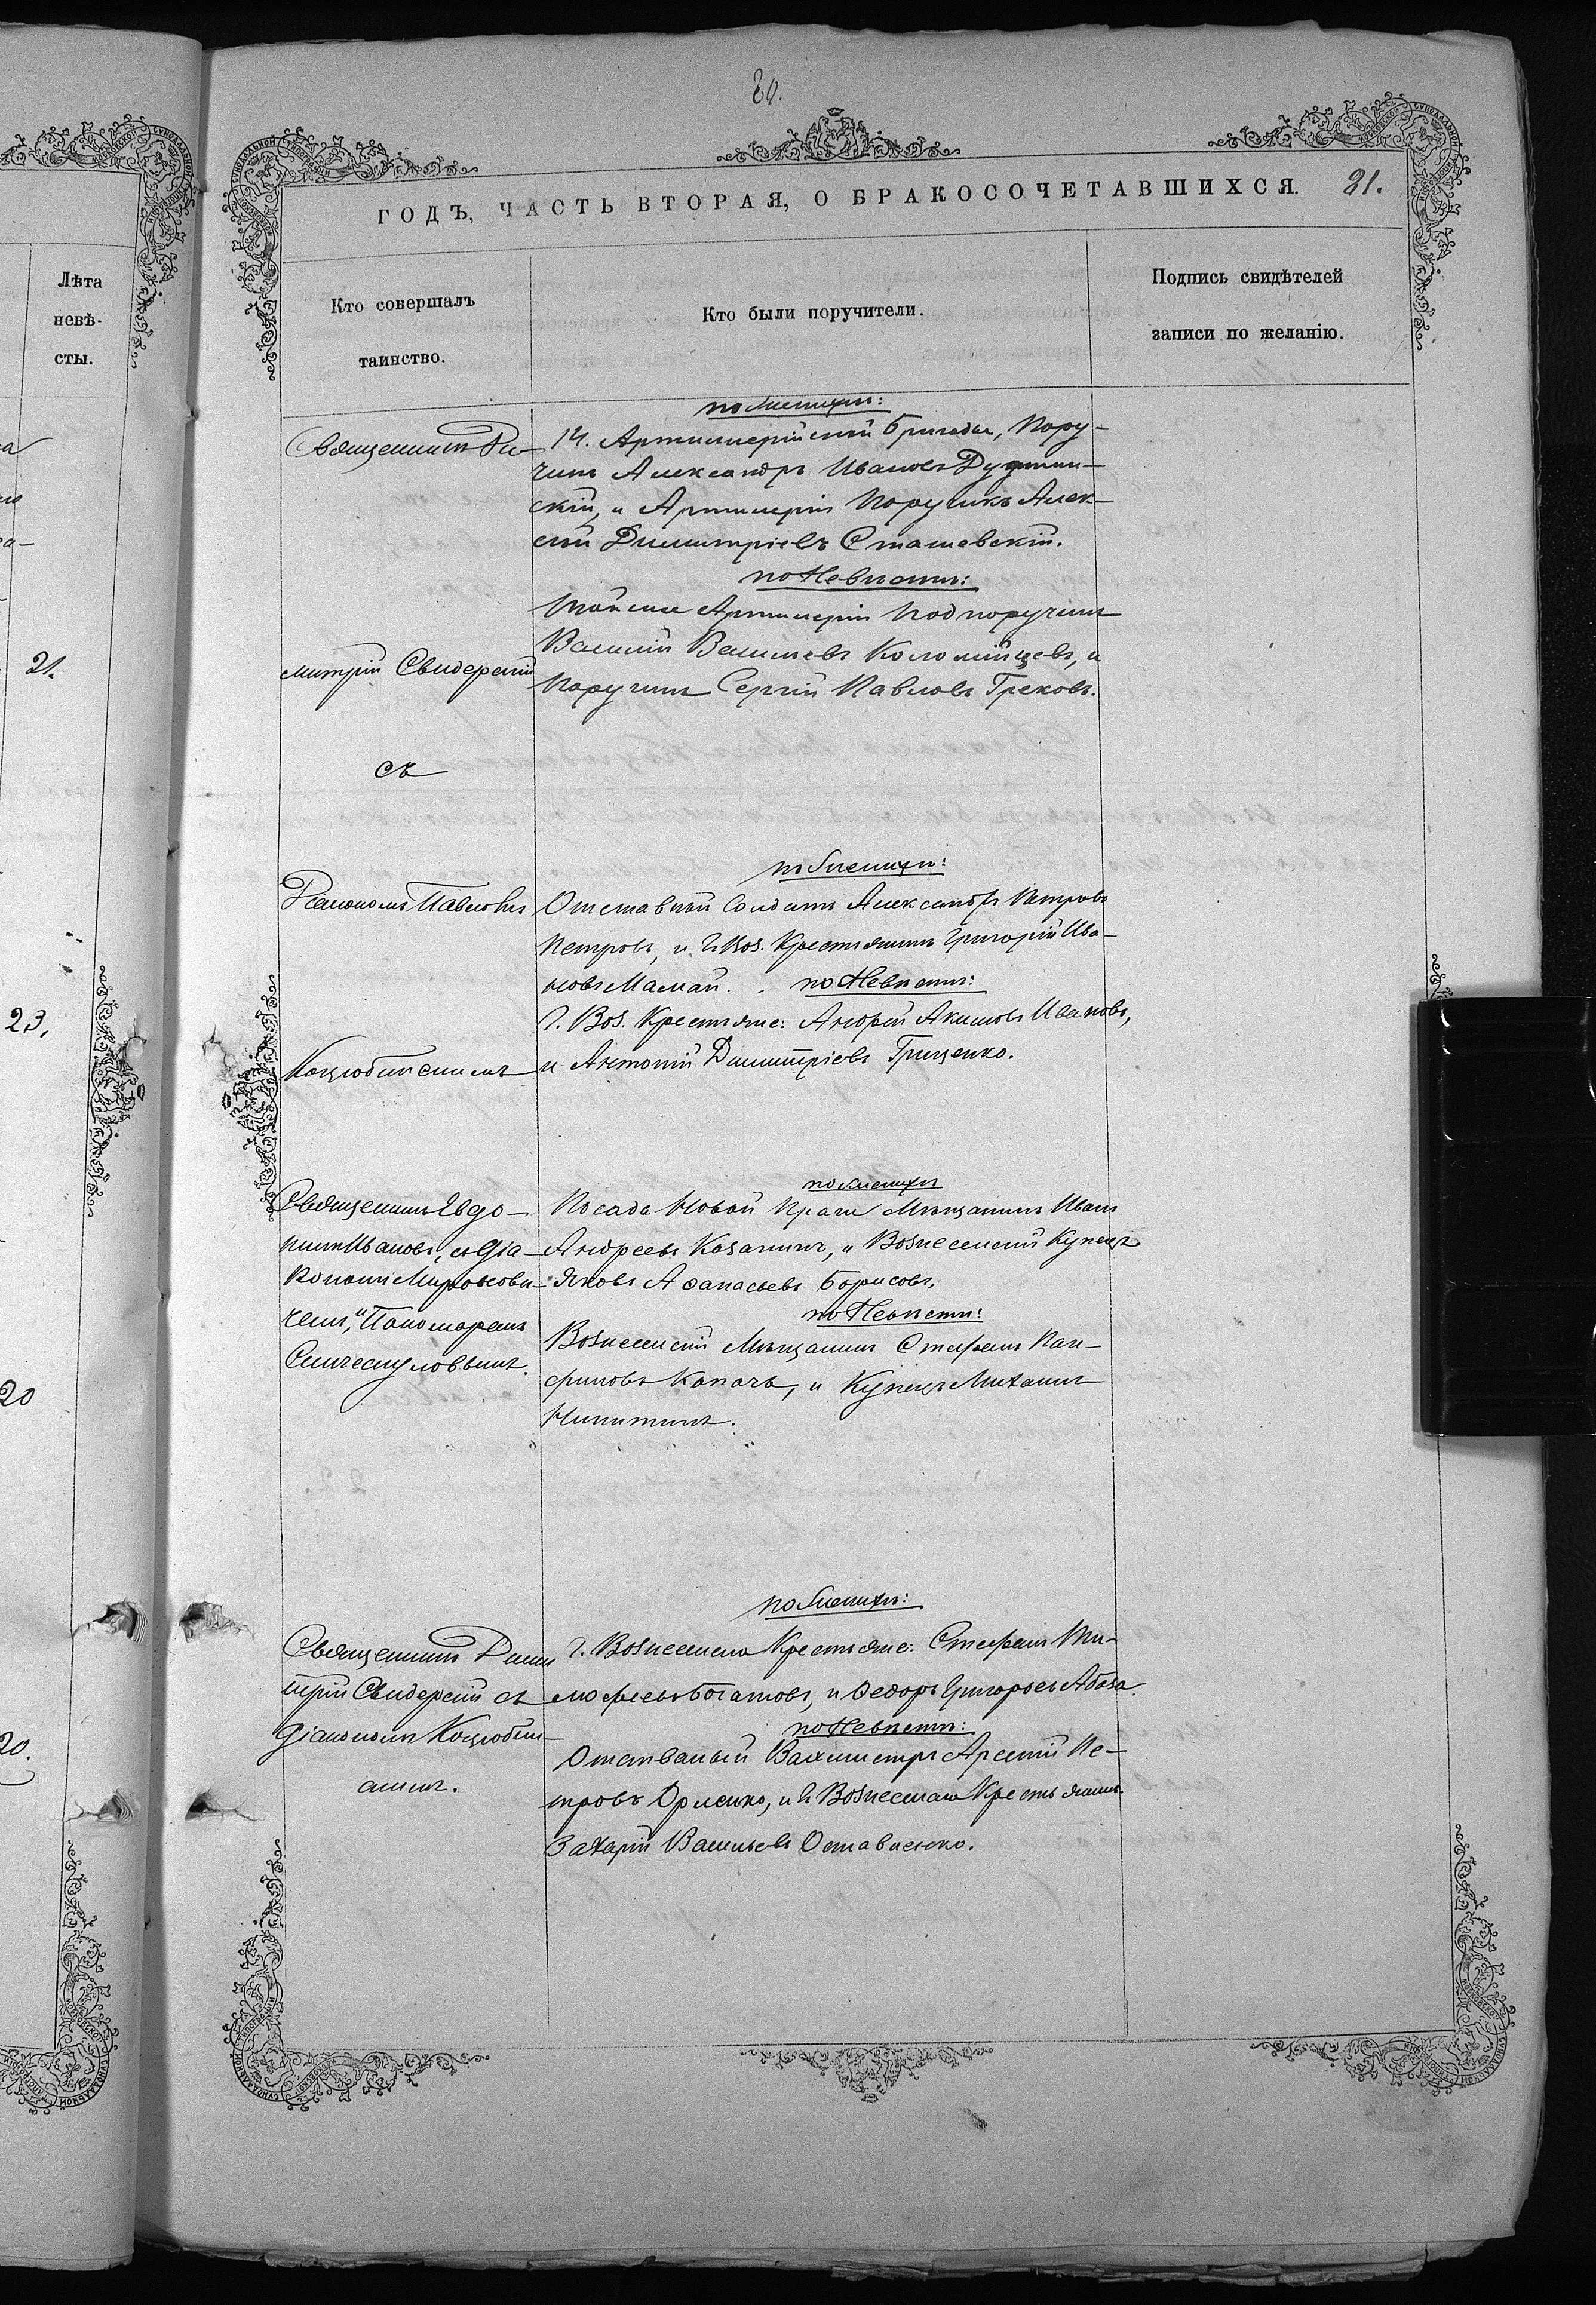 80.
ГОДЪ, ЧАСТЬ ВТОРАЯ, О БРАКОСОЧЕТАВШИХСЯ. 81.
Лѣта
невѣ-
сты.
21.
23,
20
20.
Кто совершалъ
таинство.
Кто были поручители.
Подпись свидѣтелей
записи по желанію.
Священникъ Ди-
митрій Свидерскій
съ
по Женихѣ:
14. Артиллерійской Бригады, Пору-
чикъ Александръ Ивановъ
скій, и Артилеріи Поручикъ Алек-
сѣй Димитріевъ Сташевскій.
по Невѣстѣ:
Тойже Артилеріи Подпоручикъ
Василій Васильевъ Коломійцевъ, и
Поручикъ Сергій Павловъ Грековъ.
Діакономъ Павломъ
Коцюбинскимъ
по Женихѣ:
Отставный Солдатъ Александръ Петровъ
Петровъ, и Г. Воз. Крестьянинъ Григорій Ива-
новъ Мамай. по Невѣстѣ:
Г. Воз. Крестьяне: Андрій Акимовъ Ивановъ,
и Антоній Димитріевъ Гриценко.
Священникъ Евдо-
кимъ Ивановъ, съ Діа-
кономъ
чемъ, и Пономаремъ
по Женихѣ
Посада Новой Праги Мѣщанинъ Иванъ
Андреевъ Казанинъ, и Вознесенскій Купецъ
Яковъ Аѳанасьевъ Борисовъ.
по Невѣстѣ:
Вознесенскій Мѣщанинъ Стефанъ Пан-
филовъ Капачъ, и Купецъ Михаилъ
Никитинъ.
Священникъ Дими
трій Свидерскій съ
Діакономъ Коцюбин-
скимъ.
по Женихѣ:
Г. Вознесенска Крестьяне: Стефанъ Ти-
мофеевъ Богатовъ, и Ѳедоръ Григорьевъ Абаза.
по Невѣстѣ:
Отставный Вахмистръ Арсеній Пе-
тровъ Орленко, и Г. Вознесенска Крестьянинъ
Захарій Васильевъ Оставненко.